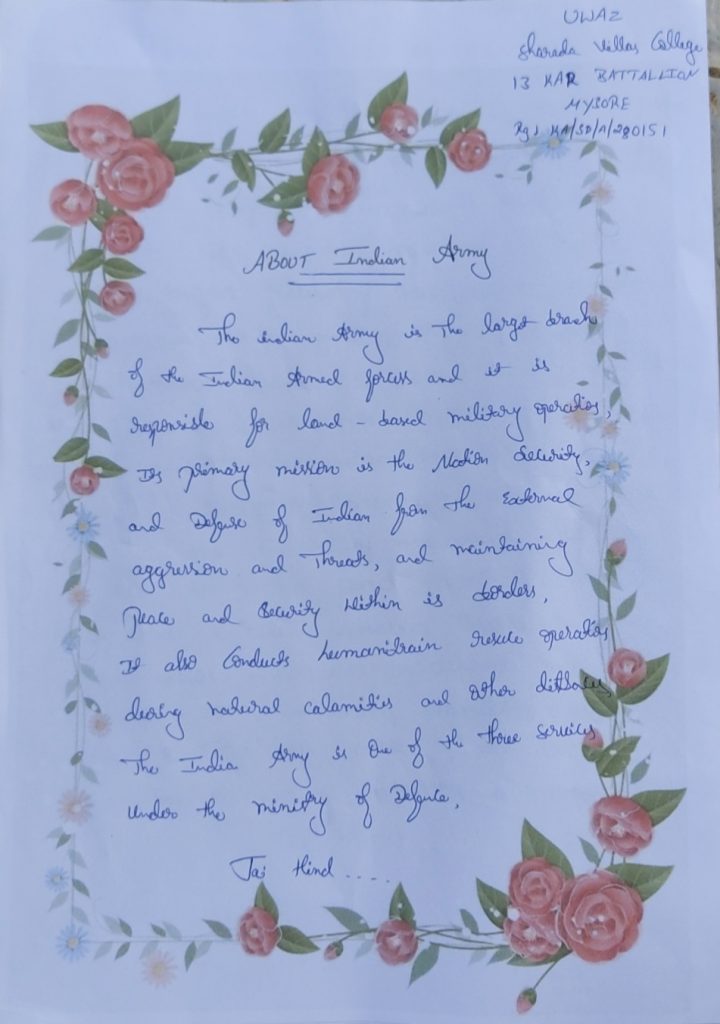 UWAZ
Sharada Villas College
13 KAR BATTALLION
MYSORE
ABOUT Indian Army
The indian Army is The largst branch
of the Indian Armed forcess and it is
responsible for land - based military operatios,
Its primary mission is the Nation Security,
and Defense of Indian from the External
aggression and Threats, and maintaining
Peace and Security Within is borders,
It also Conducts humanitrain rescue operatios
during natural calamities and other
The India Army is One of the three services
Under the ministry of Defence,
Jai Hind ....